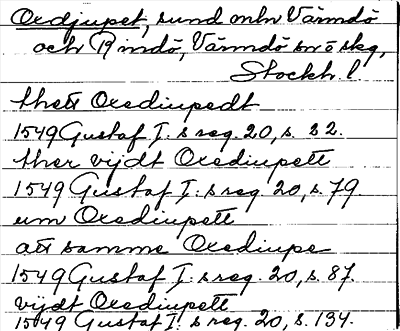 Oxdjupet, sund mln Värmdö
och Rindö, Värmdö sn o skg,
Stockh. l
thett Oxediupedt
1549 Gustaf I:s reg. 20, s. 22.
ther vijdt Oxediupett
1549 Gustaf I:s reg. 20, s. 79
um Oxediupett
att samme Oxediupe
1549 Gustaf I:s reg. 20, s. 87.
vijdt Oxediupett
1549 Gustaf I:s reg. 20, s. 134.